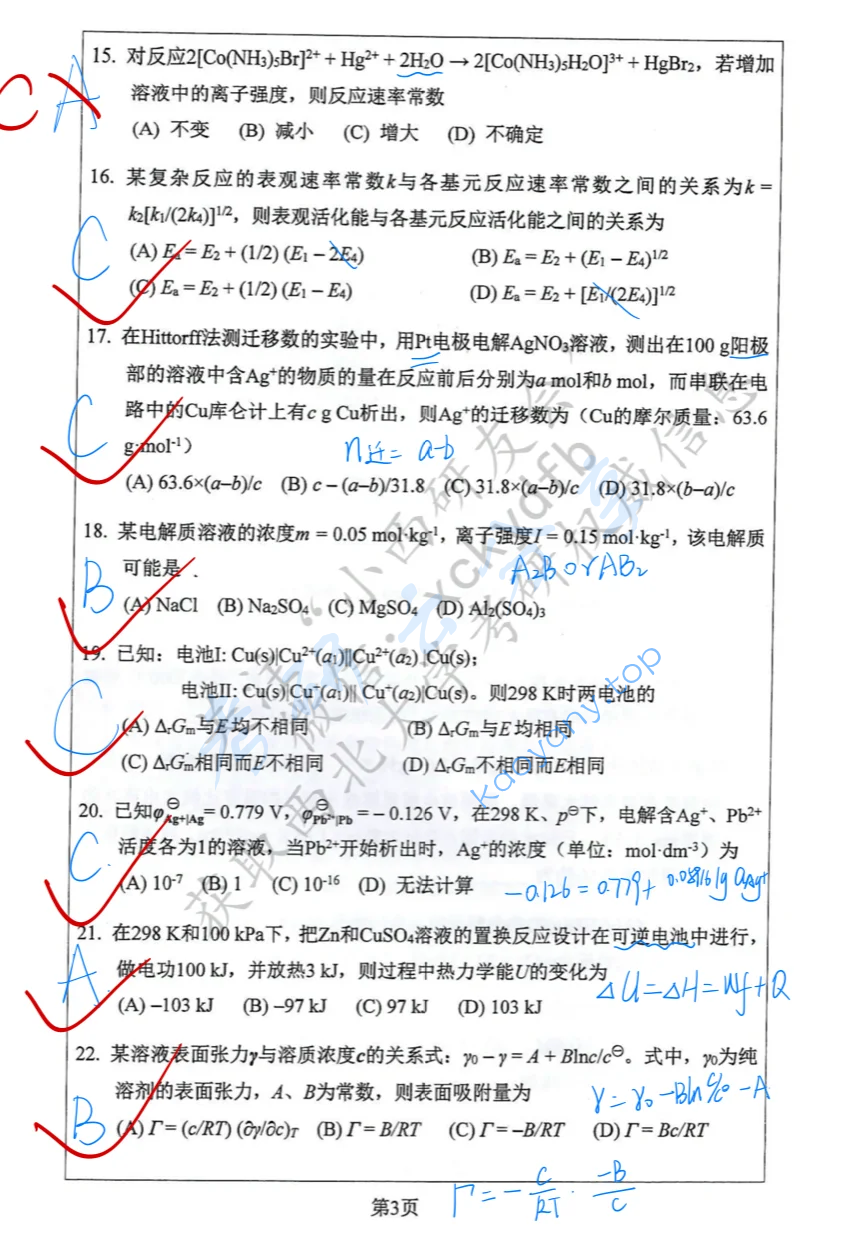 15. 对反应2[Co(NH₃)₅Br]²⁺ + Hg²⁺ + 2H₂O → 2[Co(NH₃)₅H₂O]³⁺ + HgBr₂，若增加
溶液中的离子强度，则反应速率常数
C A
(A) 不变 (B) 减小 (C) 增大 (D) 不确定
16. 某复杂反应的表观速率常数k与各基元反应速率常数之间的关系为k =
k₂[k₁/(2k₄)]¹ᐟ²，则表观活化能与各基元反应活化能之间的关系为
C
(A) Eₐ = E₂ + (1/2) (E₁ – 2E₄) (B) Eₐ = E₂ + (E₁ – E₄)¹ᐟ²
(C) Eₐ = E₂ + (1/2) (E₁ – E₄) (D) Eₐ = E₂ + [E₁/(2E₄)]¹ᐟ²
17. 在Hittorff法测迁移数的实验中，用Pt电极电解AgNO₃溶液，测出在100 g阳极
部的溶液中含Ag⁺的物质的量在反应前后分别为a mol和b mol，而串联在电
路中的Cu库仑计上有c g Cu析出，则Ag⁺的迁移数为（Cu的摩尔质量：63.6
C
g·mol⁻¹） n迁 = a-b
(A) 63.6×(a–b)/c (B) c – (a–b)/31.8 (C) 31.8×(a–b)/c (D) 31.8×(b–a)/c
18. 某电解质溶液的浓度m = 0.05 mol·kg⁻¹，离子强度I = 0.15 mol·kg⁻¹，该电解质
可能是 A₂B or AB₂
B
(A) NaCl (B) Na₂SO₄ (C) MgSO₄ (D) Al₂(SO₄)₃
19. 已知：电池I: Cu(s)|Cu²⁺(a₁)||Cu²⁺(a₂)|Cu(s);
电池II: Cu(s)|Cu⁺(a₁)|| Cu⁺(a₂)|Cu(s)。则298 K时两电池的
C
(A) ΔᵣGₘ与E均不相同 (B) ΔᵣGₘ与E均相同
(C) ΔᵣGₘ相同而E不相同 (D) ΔᵣGₘ不相同而E相同
20. 已知φ⊖Ag⁺|Ag = 0.779 V，φ⊖Pb²⁺|Pb = – 0.126 V，在298 K、p⊖下，电解含Ag⁺、Pb²⁺
活度各为1的溶液，当Pb²⁺开始析出时，Ag⁺的浓度（单位：mol·dm⁻³）为
C
(A) 10⁻⁷ (B) 1 (C) 10⁻¹⁶ (D) 无法计算 -0.126 = 0.779 + 0.05916 lg aAg⁺
21. 在298 K和100 kPa下，把Zn和CuSO₄溶液的置换反应设计在可逆电池中进行，
做电功100 kJ，并放热3 kJ，则过程中热力学能U的变化为
A
ΔU=ΔH=Wf+Q
(A) –103 kJ (B) –97 kJ (C) 97 kJ (D) 103 kJ
22. 某溶液表面张力γ与溶质浓度c的关系式：γ₀ – γ = A + Blnc/c⊖。式中，γ₀为纯
溶剂的表面张力，A、B为常数，则表面吸附量为
γ = γ₀ -Bln c/c⊖ -A
B
(A) Γ = (c/RT) (∂γ/∂c)ᴛ (B) Γ = B/RT (C) Γ = –B/RT (D) Γ = Bc/RT
第3页
Γ = - c/RT · -B/c
“小西研友会”
微信：xckydfb
获取西北大学考研权威信息
kaoyany.top